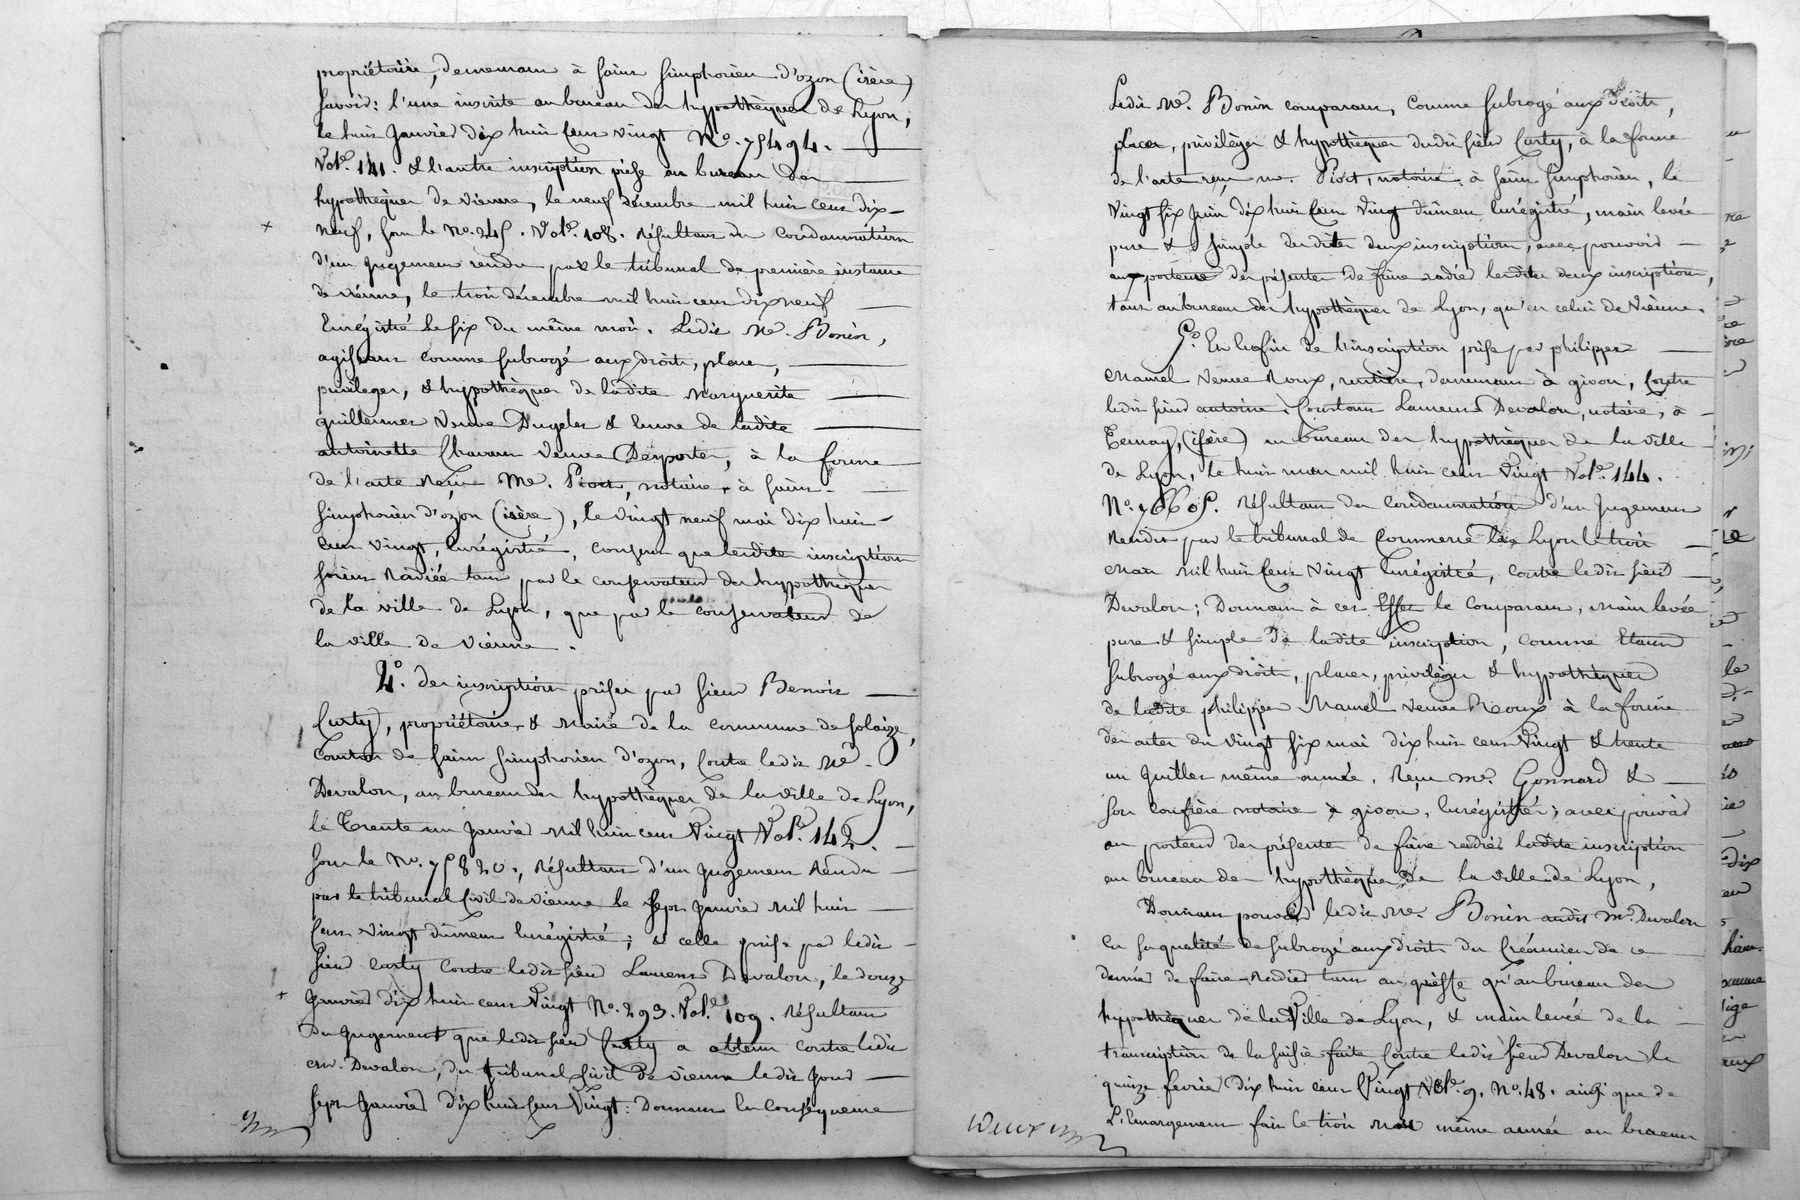 propriétaire, demeurant à saint simphorien d'ozon (isère)
savoir: l'une inscrite au bureau des hypothèques de Lyon,
le huit Janvier dix huit cent vingt N.o 75494.
Vol.e 141. & l'autre inscription prise au bureau des
hypothèques de viénne, le neuf décembre mil huit cent dix-
neuf, sous le N.o 245. Vol.e 108. résultant de Condamnation
d'un jugement rendu par le tribunal de première instance
de viénne, le trois décembre mil huit cent dix neuf
Enregistré le six du même mois. Ledit Me. Bonin,
agissant comme subrogé aux droits, places,
privileges, & hypothèques de ladite Marguerite
guillermet Veuve Dugelet & encore de ladite
antoinette Chavan Veuve Desportes, à la forme
de l'acte Reçu Me. Piost, notaire à saint-
simphorien d'ozon (isère), le vingt neuf mai dix huit
cent vingt, enrégistré, consent que lesdites inscriptions
soient Radiées tant par le conservateur des hypothèques
de la ville de Lyon, que par le conservateur de
la ville de viénne.
4.o des inscriptions prises par sieur Benoit
Curty, propriétaire & Maire de la commune de solaize,
Canton de saint simphorien d'ozon, contre ledit Me.
Devalon, au bureau des hypothèques de la ville de Lyon,
le Trente un Janvier mil huit cent Vingt Vol.e 142.
sous le N.o 75820., résultant d'un jugement Rendu
par le tribunal Civil de vienne le sept Janvier mil huit
Cent Vingt dûment Enrégistré; & celle prise par ledit
sieur Curty contre ledit sieur Laurent Devalon, le douze
Janvier dix huit cent Vingt N.o 293. Vol.e 109. résultant
du Jugement que ledit sieur Curty a obtenu contre ledit
Devalon, du tribunal Civil de vienne ledit Jour
sept Janvier dix huit cent Vingt: Donnant en Conséquence
Ledit Me. Bonin comparant, Comme subrogé aux droits,
places, privilèges & hypothèques dudit sieur Curty, à la forme
de l'acte reçu me. Piost, notaire à saint simphorien, le
Vingt six Juin dix huit Cent Vingt dûment Enrégistré, main levée
pure & simple desdites deux inscriptions, avec pouvoir
aux porteurs des présentes de faire radier lesdites deux inscriptions,
tant au bureau des hypothèques de Lyon, qu'en celui de viénne.
5.o Enfin de l'inscription prise par philippes
Mamel Veuve Roux, rentière, demeurant à givors, Contre
ledit sieur antoine Constant Laurent Devalon, notaire, à
Ternay, (isère) au bureau des hypothèques de la ville
de Lyon, le huit mars mil huit cent Vingt Vol.e 144.
N.o 76605. résultant de Condamnation d'un Jugement
Rendu par le tribunal de Commerce de Lyon le trois
Mars Mil huit Cent Vingt Enrégistré, contre ledit sieur
Devalon; Donnant à cet Effet le Comparant, Main levée
pure & simple de ladite inscription, comme Etant
subrogé aux droits, places, privilèges & hypothèques
de ladite philippes Mamel veuve Roux à la forme
des actes du Vingt six mai dix huit cent Vingt & trente
un Juillet même année, Reçu me. Gonnard &
son confrère notaire à givors, Enrégistrés; avec pouvoir
au porteur des présentes de faire radier ladite inscription
au bureau des hypothèques de la ville de Lyon,
Donnant pouvoir ledit Me. Bonin audit Me. Devalon
En sa qualité de subrogé aux droits des Créanciers de ce
dernier de faire Radier tant au greffe qu'au bureau des
hypothèques de la Ville de Lyon, & main levée de la
transcription de la saisie faite Contre ledit sieur Devalon le
quinze fevrier dix huit cent Vingt Vol.e 9. N.o 48. ainsi que de
L'Emargement fait le trois Mars même année au bureau